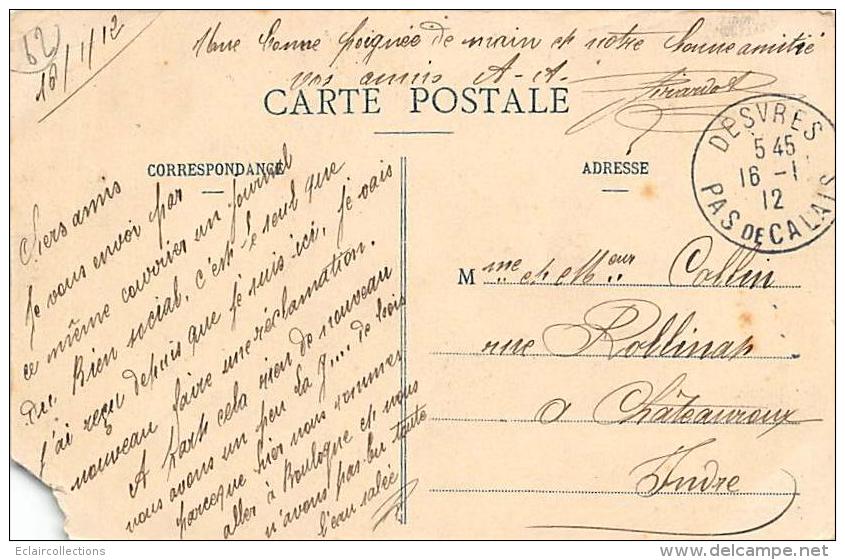 62
16/1/12
Une bonne poignée de main et notre bonne amitié
vos amis A-A-
Girardot
CARTE POSTALE
CORRESPONDANCE
ADRESSE
DESVRES
5 45
16 -1
12
PAS DE CALAIS
Chers amis
Je vous envoi par
ce même courrier un journal
Du Bien social, c'est le seul que
j'ai reçu depuis que je suis ici, je vais
nouveau faire une réclamation.
A part cela rien de nouveau
nous avons un peu la g.... de bois
parceque hier nous sommes
aller à Boulogne et nous
n'avons pas bu toute
l'eau salée
Mme et Mieur Collin
rue Rollinat
a Châteauroux
Indre
Eclaircollections
http://eclaircollections.delcampe.net